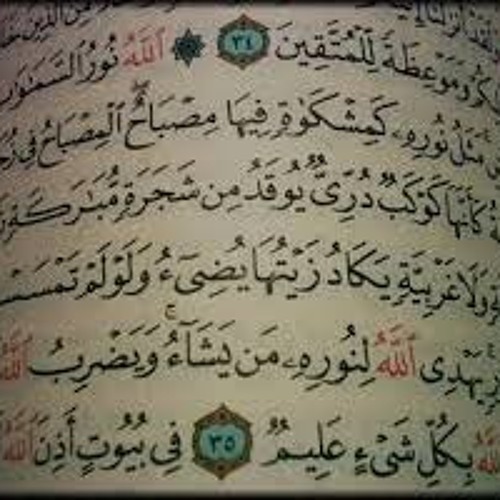 وَمَوْعِظَةً لِّلْمُتَّقِينَ ٣٤ ۞ ٱللَّهُ نُورُ ٱلسَّمَٰوَٰتِ
مَثَلُ نُورِهِۦ كَمِشْكَوٰةٍ فِيهَا مِصْبَاحٌ ۖ ٱلْمِصْبَاحُ فِى
كَأَنَّهَا كَوْكَبٌ دُرِّىٌّ يُوقَدُ مِن شَجَرَةٍ مُّبَٰرَكَةٍ
وَلَا غَرْبِيَّةٍ يَكَادُ زَيْتُهَا يُضِىٓءُ وَلَوْ لَمْ تَمْسَسْ
يَهْدِى ٱللَّهُ لِنُورِهِۦ مَن يَشَآءُ ۚ وَيَضْرِبُ ٱللَّهُ
ٱللَّهُ بِكُلِّ شَىْءٍ عَلِيمٌ ٣٥ فِى بُيُوتٍ أَذِنَ ٱللَّهُ